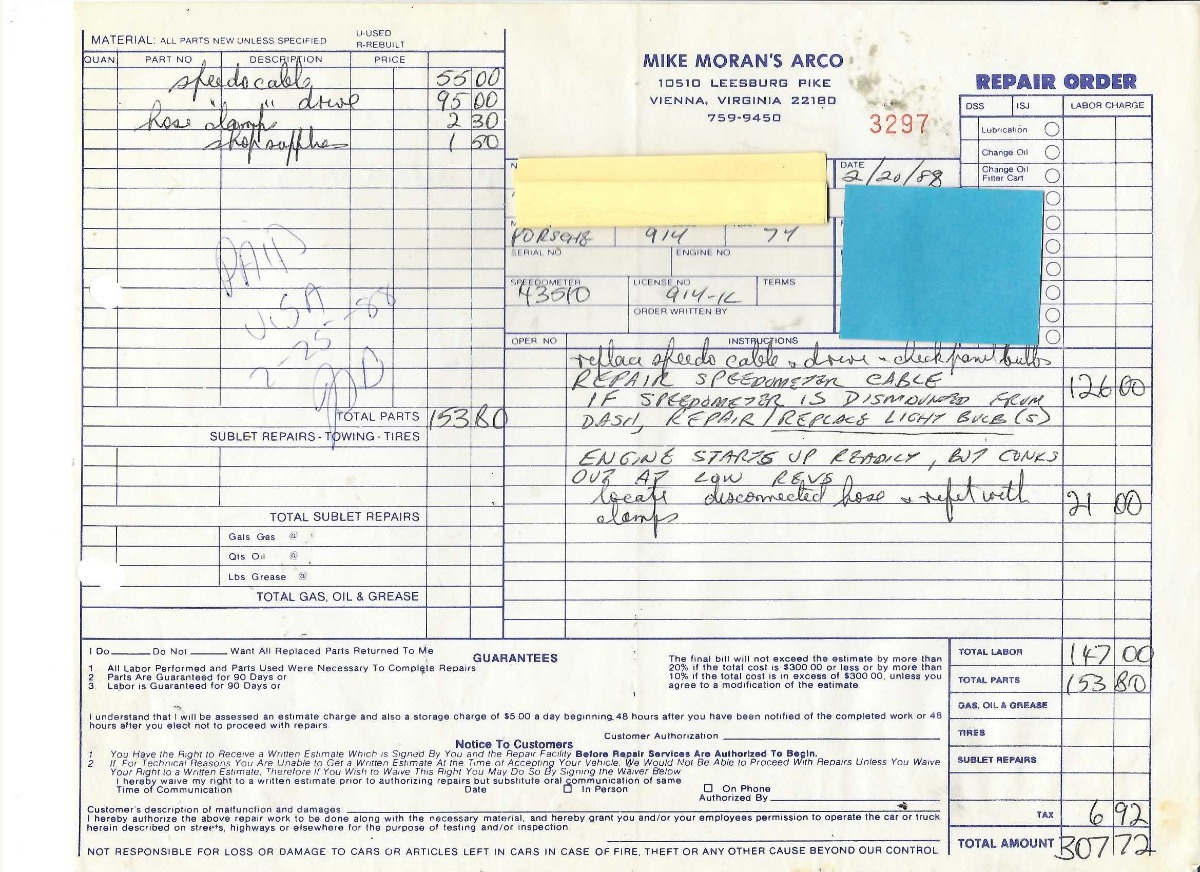 MATERIAL: ALL PARTS NEW UNLESS SPECIFIED
U-USED
R-REBUILT
QUAN PART NO DESCRIPTION PRICE
speedo cable 55 00
" " drive 95 00
hose clamps 2 30
shop supplies 1 50
PAID
VISA
2-25-88
TOTAL PARTS 153 80
SUBLET REPAIRS - TOWING - TIRES
TOTAL SUBLET REPAIRS
Gals Gas @
Qts Oil @
Lbs Grease @
TOTAL GAS, OIL & GREASE
MIKE MORAN'S ARCO
10510 LEESBURG PIKE
VIENNA, VIRGINIA 22180
759-9450
3297
REPAIR ORDER
DSS ISJ LABOR CHARGE
Lubrication
Change Oil
Change Oil
Filter Cart
DATE
2/20/88
PORSCHE 914 74
SERIAL NO ENGINE NO
SPEEDOMETER LICENSE NO TERMS
43510 914-IL
ORDER WRITTEN BY
OPER NO INSTRUCTIONS
replace speedo cable & drive - check panel bulbs
REPAIR SPEEDOMETER CABLE 126 00
IF SPEEDOMETER IS DISMOUNTED FROM
DASH, REPAIR/REPLACE LIGHT BULB(S)
ENGINE STARTS UP READILY, BUT CONKS
OUT AT LOW REVS
locate disconnected hose & refit with 21 00
clamps
I Do Do Not Want All Replaced Parts Returned To Me
GUARANTEES
1 All Labor Performed and Parts Used Were Necessary To Complete Repairs
2 Parts Are Guaranteed for 90 Days or
3 Labor is Guaranteed for 90 Days or
The final bill will not exceed the estimate by more than
20% if the total cost is $300 00 or less or by more than
10% if the total cost is in excess of $300 00, unless you
agree to a modification of the estimate
I understand that I will be assessed an estimate charge and also a storage charge of $5 00 a day beginning 48 hours after you have been notified of the completed work or 48
hours after you elect not to proceed with repairs
Customer Authorization
Notice To Customers
1 You Have the Right to Receive a Written Estimate Which is Signed By You and the Repair Facility Before Repair Services Are Authorized To Begin.
2 If, For Technical Reasons You Are Unable to Get a Written Estimate At the Time of Accepting Your Vehicle, We Would Not Be Able to Proceed With Repairs Unless You Waive
Your Right to a Written Estimate, Therefore If You Wish to Waive This Right You May Do So By Signing the Waiver Below
I hereby waive my right to a written estimate prior to authorizing repairs but substitute oral communication of same
Time of Communication Date In Person On Phone
Authorized By
Customer's description of malfunction and damages
I hereby authorize the above repair work to be done along with the necessary material, and hereby grant you and/or your employees permission to operate the car or truck
herein described on streets, highways or elsewhere for the purpose of testing and/or inspection
NOT RESPONSIBLE FOR LOSS OR DAMAGE TO CARS OR ARTICLES LEFT IN CARS IN CASE OF FIRE, THEFT OR ANY OTHER CAUSE BEYOND OUR CONTROL
TOTAL LABOR 147 00
TOTAL PARTS 153 80
GAS, OIL & GREASE
TIRES
SUBLET REPAIRS
TAX 6 92
TOTAL AMOUNT 307 72